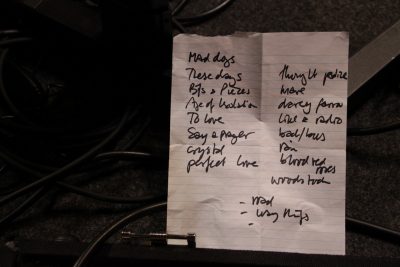 MAD dogs
These days
Bits & Pieces
Age of Isolation
To Love
Say a prayer
crystal
perfect love
thought police
more
darcy farrow
like a radio
bad/loves
rain
blood red
roses
woodstock
- road
- way things
-